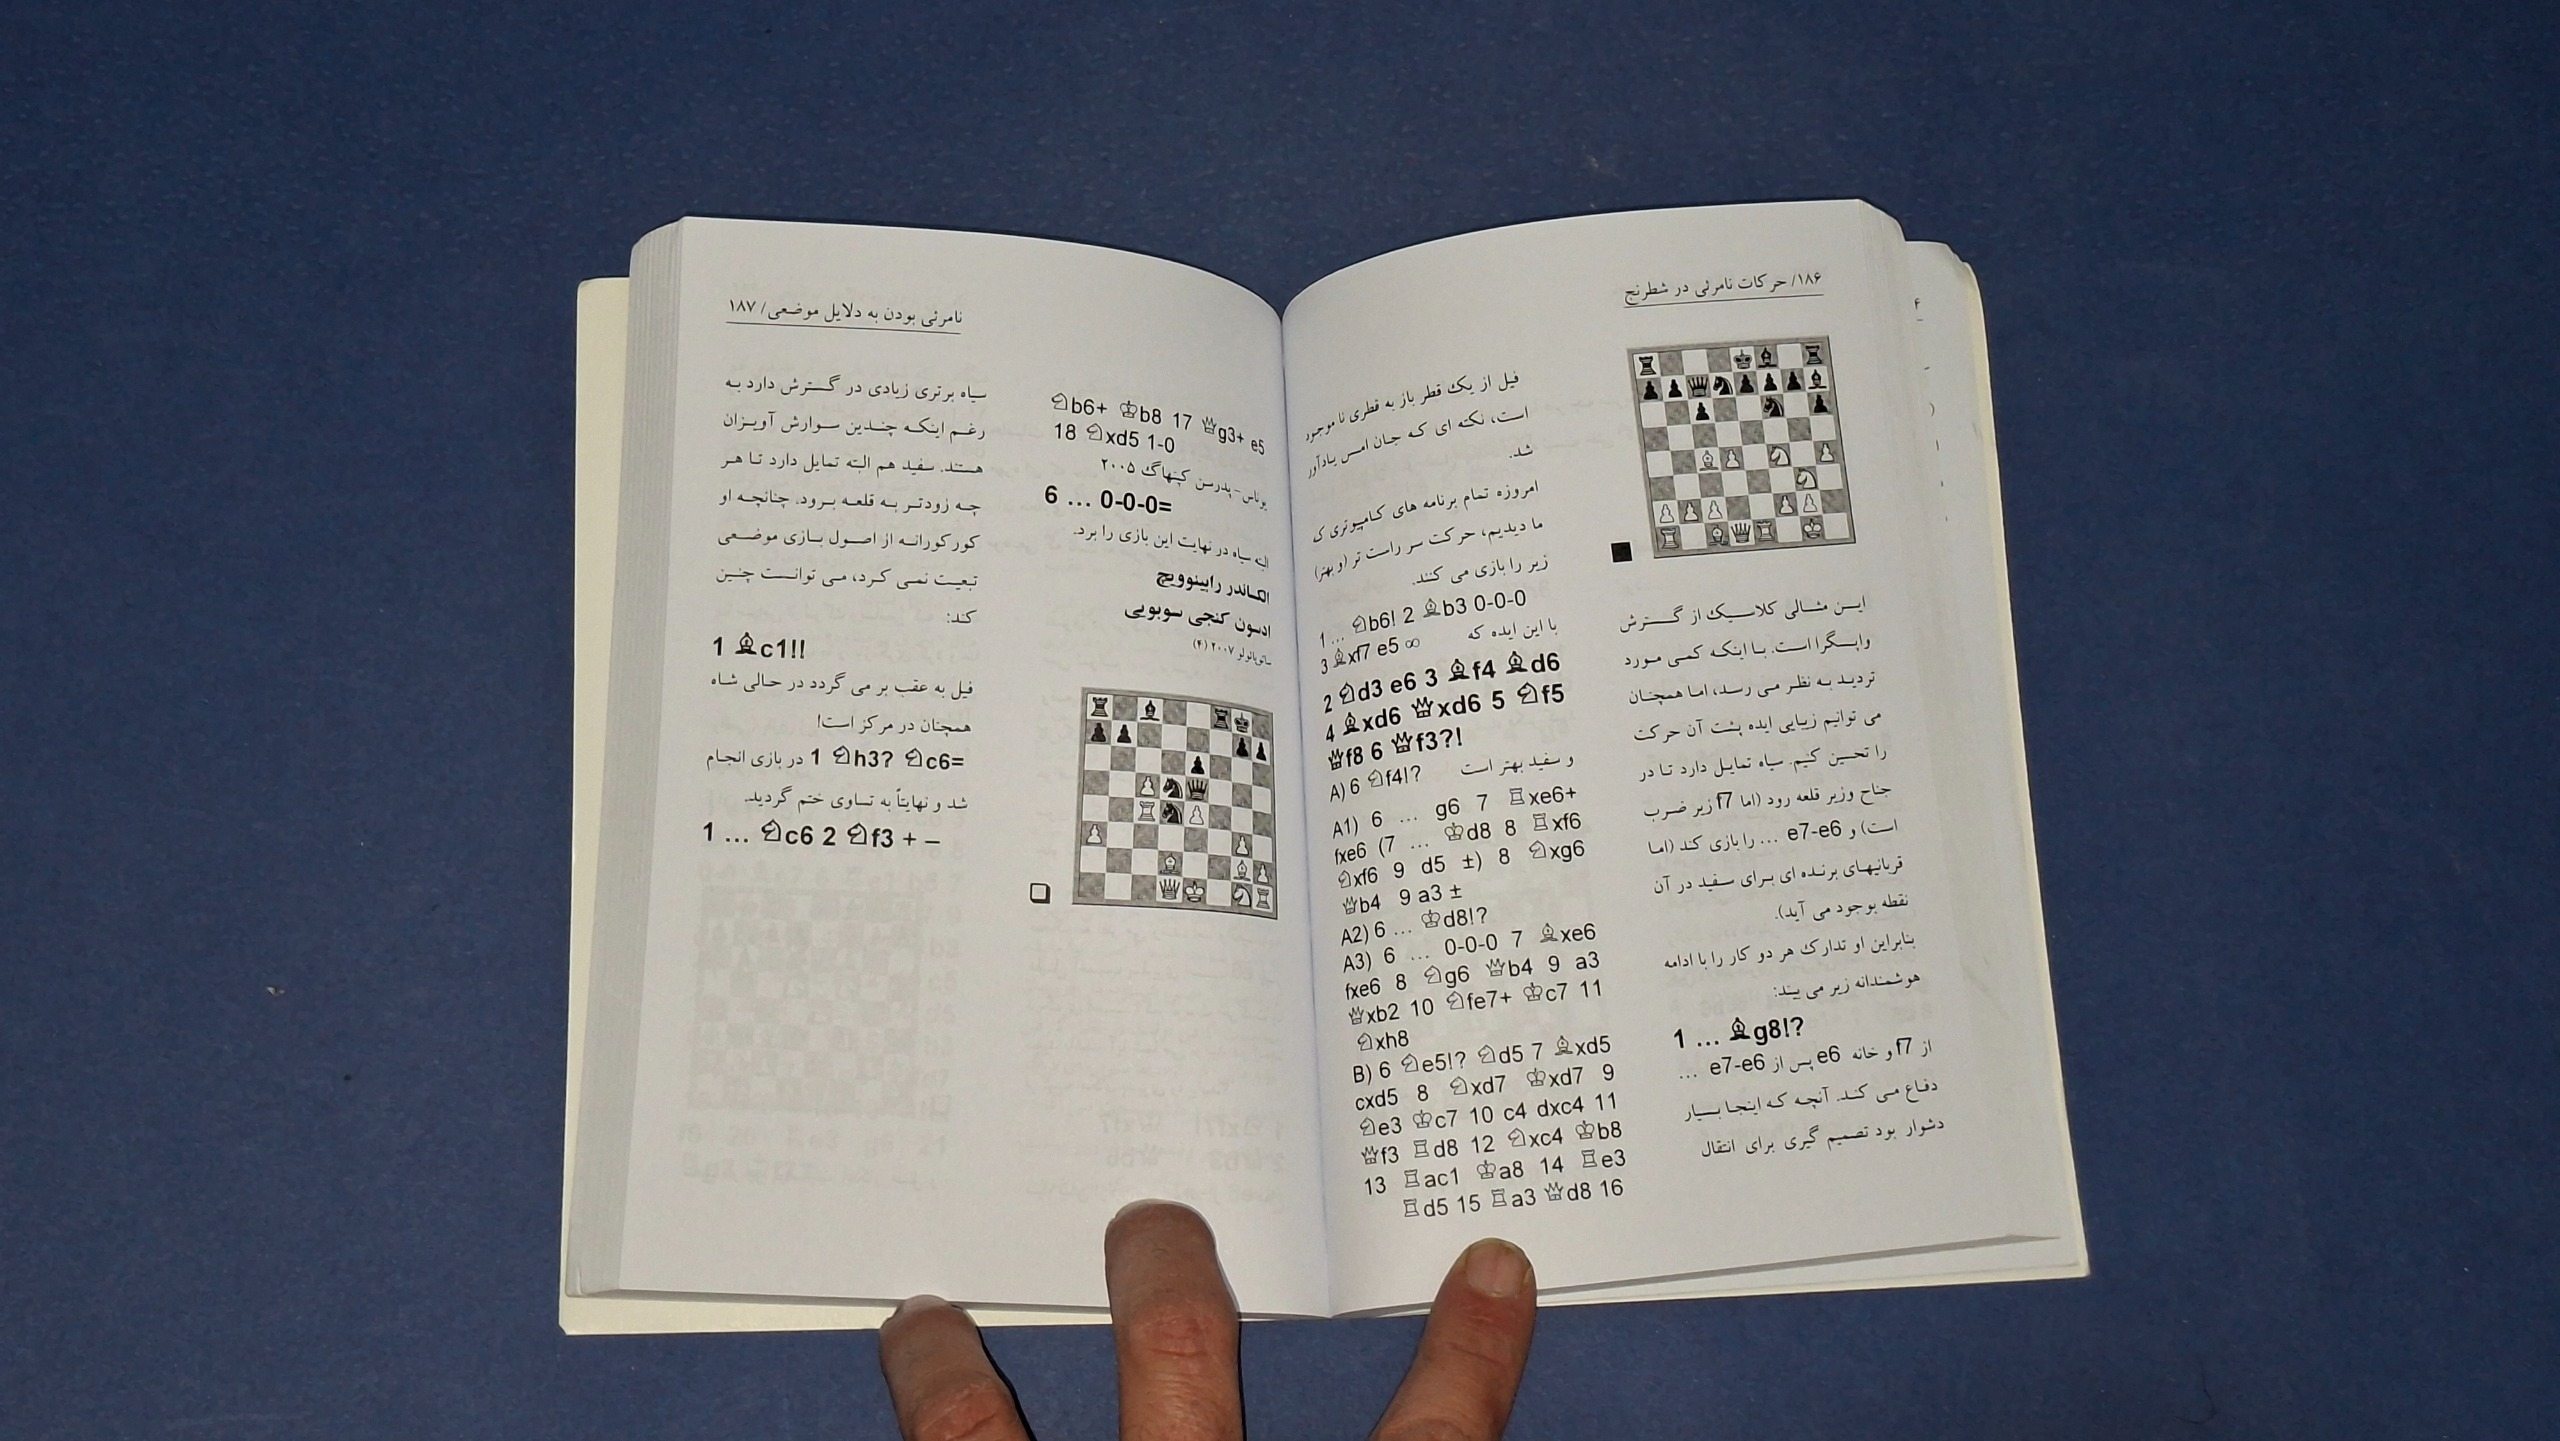 ۱۸۶/ حرکات نامرئی در شطرنج
این مثالی کلاسیک از گسترش
واپسگرا است. با اینکه کمی مورد
تردید به نظر می رسد، اما همچنان
می توانیم زیبایی ایده پشت آن حرکت
را تحسین کنیم. سیاه تمایل دارد تا در
جناح وزیر قلعه رود (اما f7 زیر ضرب
است) و e7-e6 ... را بازی کند (اما
قربانیهای برنده ای برای سفید در آن
نقطه بوجود می آید).
بنابراین او تدارک هر دو کار را با ادامه
هوشمندانه زیر می بیند:
1 ... ♗g8!?
از f7 و خانه e6 پس از e7-e6 ...
دفاع می کند. آنچه که اینجا بسیار
دشوار بود تصمیم گیری برای انتقال
فیل از یک قطر باز به قطری ناموجود
است، نکته ای که جان امس یادآور
شد.
امروزه تمام برنامه های کامپیوتری ک
ما دیدیم، حرکت سر راست تر (و بهتر)
زیر را بازی می کنند.
1 ... ♘b6! 2 ♗b3 0-0-0
با این ایده که
3 ♗xf7 e5 ∞
2 ♘d3 e6 3 ♗f4 ♗d6
4 ♗xd6 ♕xd6 5 ♘f5
♕f8 6 ♕f3?!
و سفید بهتر است A) 6 ♘f4!?
A1) 6 ... g6 7 ♖xe6+
fxe6 (7 ... ♔d8 8 ♖xf6
♘xf6 9 d5 ±) 8 ♘xg6
♕b4 9 a3 ±
A2) 6 ... ♔d8!?
A3) 6 ... 0-0-0 7 ♗xe6
fxe6 8 ♘g6 ♕b4 9 a3
♕xb2 10 ♘fe7+ ♔c7 11
♘xh8
B) 6 ♘e5!? ♘d5 7 ♗xd5
cxd5 8 ♘xd7 ♔xd7 9
♘e3 ♔c7 10 c4 dxc4 11
♕f3 ♖d8 12 ♘xc4 ♔b8
13 ♖ac1 ♔a8 14 ♖e3
♖d5 15 ♖a3 ♕d8 16
نامرئی بودن به دلایل موضعی/ ۱۸۷
♘b6+ ♔b8 17 ♕g3+ e5
18 ♘xd5 1-0
یوناس-پدرسن کپنهاگ ۲۰۰۵
6 ... 0-0-0=
البته سیاه در نهایت این بازی را برد.
الکساندر رابینوویچ
ادسون کنجی سوبویی
سائوپائولو ۲۰۰۷ (۴)
سیاه برتری زیادی در گسترش دارد به
رغم اینکه چندین سوارش آویزان
هستند. سفید هم البته تمایل دارد تا هر
چه زودتر به قلعه برود. چنانچه او
کورکورانه از اصول بازی موضعی
تبعیت نمی کرد، می توانست چنین
کند:
1 ♗c1!!
فیل به عقب بر می گردد در حالی شاه
همچنان در مرکز است!
1 ♘h3? ♘c6= در بازی انجام
شد و نهایتاً به تساوی ختم گردید.
1 ... ♘c6 2 ♘f3 + –
۴